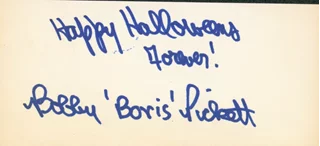 Happy Halloweens
Forever!
Bobby 'Boris' Pickett